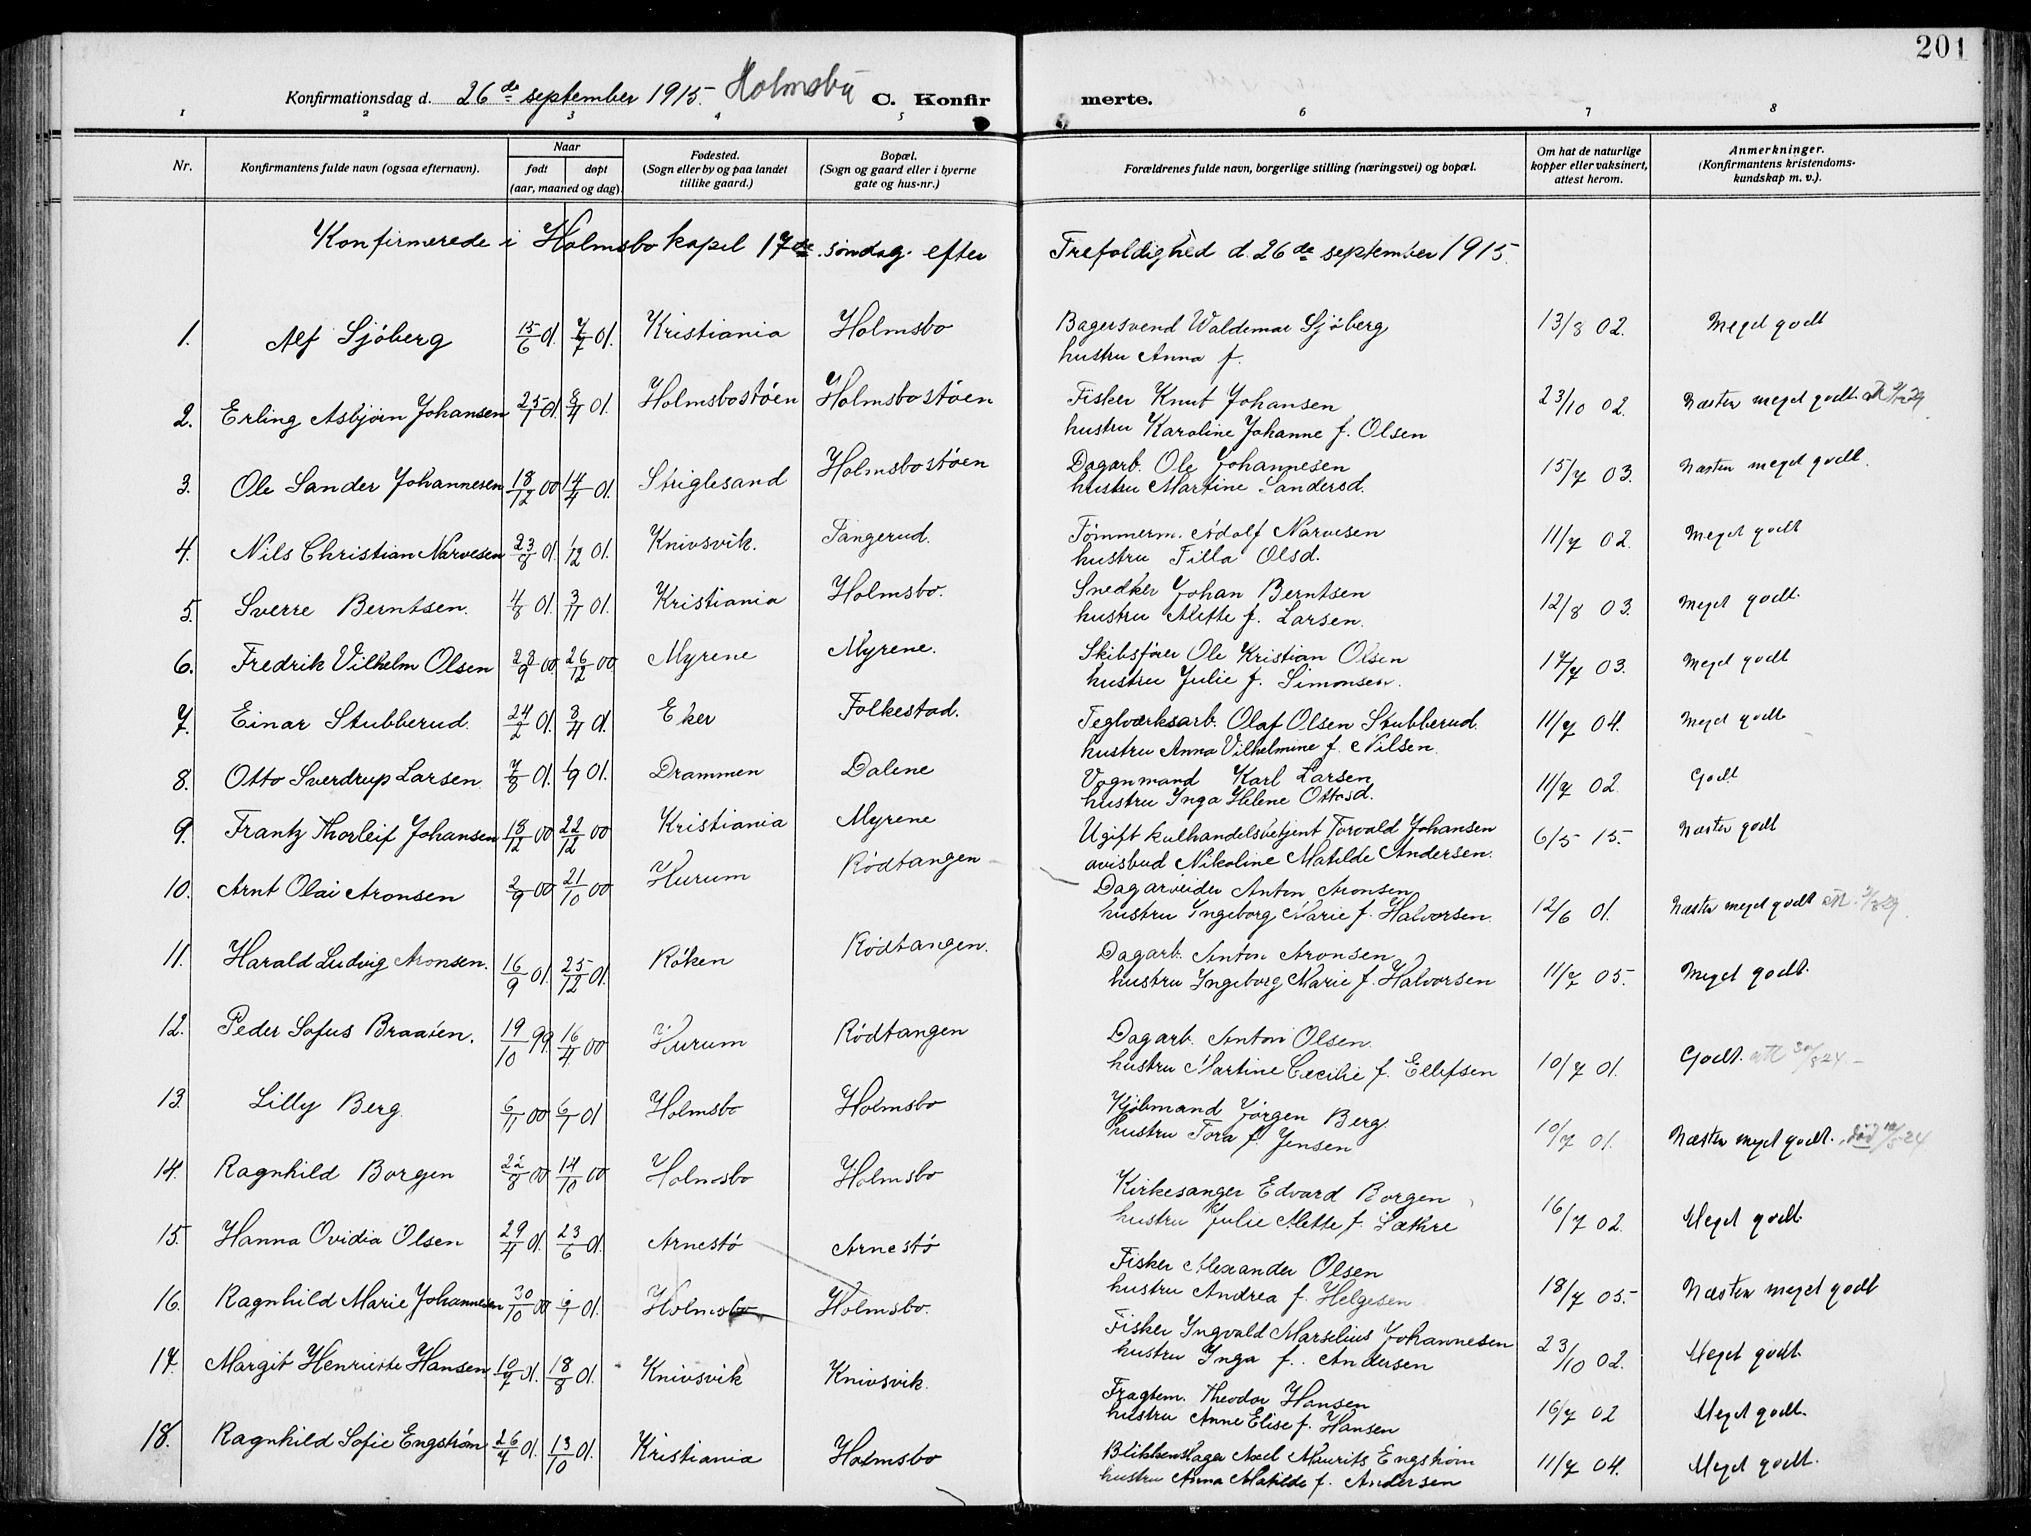 201
Konfirmationsdag d. 26de september 1915. Holmsbu C. Konfirmerte.
1 2 3 4 5 6 7 8
Nr. Konfirmantens fulde navn (ogsaa efternavn). Naar født døpt (aar, maaned og dag) Fødested. (Sogn eller by og paa landet tillike gaard.) Bopæl. (Sogn og gaard eller i byerne gate og hus-nr.) Forældrenes fulde navn, borgerlige stilling (næringsvei) og bopæl. Om hat de naturlige kopper eller vaksinert, attest herom. Anmerkninger. (Konfirmantens kristendoms-kundskap m. v.).
Konfirmerede i Holmsbo kapel 17de søndag efter Trefoldighed d. 26de september 1915.
1. Alf Sjöberg 15/6 01. 7/7 01. Kristiania Holmsbo Bagersvend Waldemar Sjöberg 13/8 02. Meget godt
hustru Anna f.
2. Erling Asbjørn Johansen 25/1 01. 8/4 01. Holmsbostöen Holmsbostöen Fisker Knut Johansen 23/10 02. Næsten meget godt.
hustru Karoline Johanne f. Olsen
3. Ole Sander Johannesen 18/12 00 14/4 01. Striglesand Holmsbostöen Dagarb. Ole Johannesen 15/7 03. Næsten meget godt.
hustru Martine Sandersd.
4. Nils Christian Narvesen 23/8 01. 1/12 01. Knivsvik. Tangerud. Tømmerm. Adolf Narvesen 11/7 02. Meget godt
hustru Tilla Olsd.
5. Sverre Berntsen. 4/8 01. 3/11 01. Kristiania Holmsbo. Snedker Johan Berntsen 12/8 03. Meget godt.
hustru Alette f. Larsen.
6. Fredrik Vilhelm Olsen 23/9 00 26/12 00 Myrene Myrene. Skibsfører Ole Kristian Olsen 17/7 03. Meget godt
hustru Julie f. Simonsen.
7. Einar Stubberud. 24/2 01. 3/4 01. Eker Folkestad. Teglværksarb. Olaf Olsen Stubberud. 11/7 04. Meget godt
hustru Anna Vilhelmine f. Nilsen.
8. Otto Sverdrup Larsen 7/8 01. 1/9 01. Drammen Dalene Vognmand Karl Larsen 11/7 02. Godt
hustru Inga Helene Ottosd.
9. Frantz Thorleif Johansen 18/12 00 22/12 00 Kristiania Myrene Ugift kulhandelsbetjent Torvald Johansen 6/5 15. Næsten godt
avisbud Nikoline Matilde Andersen.
10. Arnt Olai Aronsen 2/9 00 21/10 00 Hurum Rödtangen Dagarbeider Anton Aronsen 12/6 01. Næsten meget godt
hustru Ingeborg Marie f. Halvorsen.
11. Harald Ludvig Aronsen. 16/9 01. 25/12 01. Röken Rödtangen. Dagarb. Anton Aronsen 11/7 05. Meget godt.
hustru Ingeborg Marie f. Halvorsen
12. Peder Sofus Braaten. 19/10 99. 16/4 00 Hurum Rödtangen Dagarb. Anton Olsen. 10/7 01. Godt. att 30/8 24.
hustru Martine Cecilie f. Ellefsen
13. Lilly Berg. 6/11 00 6/1 01 Holmsbo Holmsbo Kjöbmand Jörgen Berg 10/7 01. Næsten meget godt.
hustru Tora f. Jensen
14. Ragnhild Borgen 22/8 00 14/10 00 Holmsbo Holmsbo Kirkesanger Edvard Borgen 16/7 02. Meget godt.
hustru Julie Alette f. Sætre
15. Hanna Ovidia Olsen 29/4 01. 23/6 01. Arnestö Arnestö Fisker Alexander Olsen 18/7 05. Næsten meget godt
hustru Andrea f. Helgesen
16. Ragnhild Marie Johannesen 30/10 00 6/1 01. Holmsbo Holmsbo. Fisker Ingvald Marselius Johannesen 23/10 02. Meget godt.
hustru Inga f. Andersen
17. Margit Henriette Hansen 10/7 01. 18/8 01. Knivsvik Knivsvik. Fragtem. Theodor Hansen 16/7 02 Meget godt.
hustru Anne Elise f. Hansen
18. Ragnhild Sofie Engström 26/4 01. 13/10 01. Kristiania Holmsbo Blikkenslager Axel Maurits Engström 11/7 04. Meget godt.
hustru Anna Matilde f. Andersen